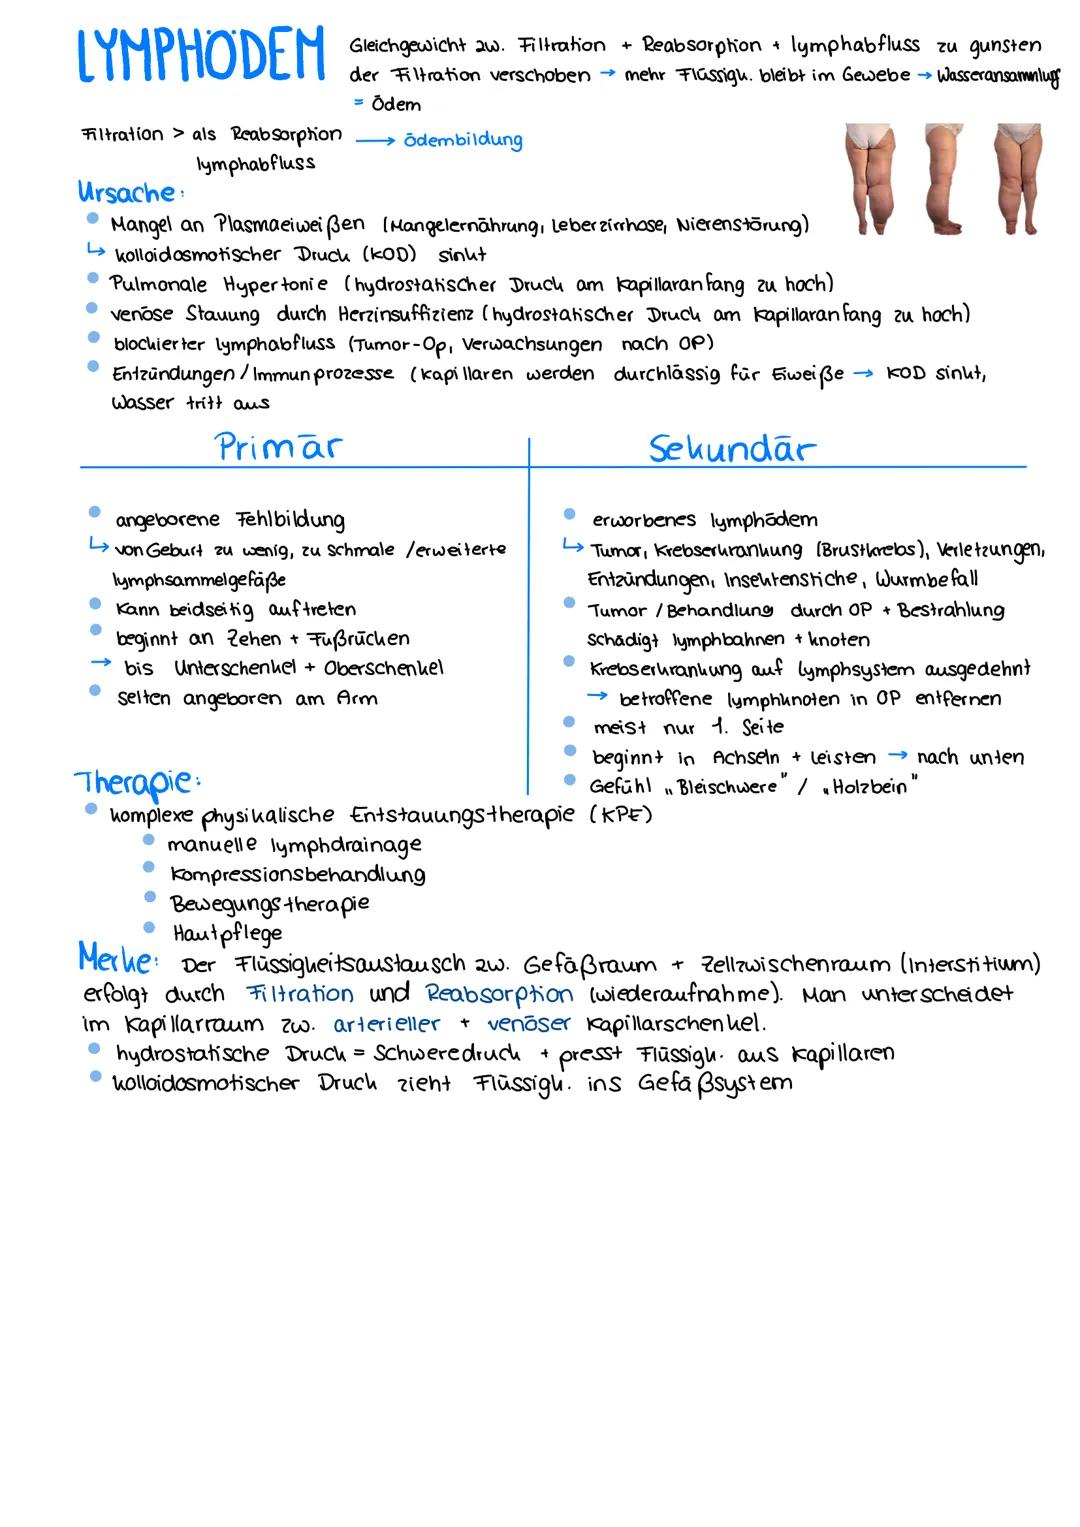 LYMPHÖDEM
Gleichgewicht zw. Filtration + Reabsorption + lymphabfluss zu gunsten
der Filtration verschoben → mehr Flüssigk. bleibt im Gewebe → Wasseransammlug
= Ödem
Filtration > als Reabsorption → Ödembildung
lymphabfluss
Ursache:
• Mangel an Plasmaeiweißen (Mangelernährung, Leberzirrhose, Nierenstörung)
↳ kolloidosmotischer Druck (KOD) sinkt
• Pulmonale Hypertonie (hydrostatischer Druck am Kapillaranfang zu hoch)
• venöse Stauung durch Herzinsuffizienz (hydrostatischer Druck am Kapillaranfang zu hoch)
• blockierter lymphabfluss (Tumor-Op, Verwachsungen nach OP)
• Entzündungen / Immunprozesse (Kapillaren werden durchlässig für Eiweiße → KOD sinkt,
Wasser tritt aus
Primär
• angeborene Fehlbildung
↳ von Geburt zu wenig, zu schmale / erweiterte
lymphsammelgefäße
• Kann beidseitig auftreten
• beginnt an Zehen + Fußrücken
→ bis Unterschenkel + Oberschenkel
• selten angeboren am Arm
Sekundär
• erworbenes lymphödem
↳ Tumor, Krebserkrankung (Brustkrebs), Verletzungen,
Entzündungen, Insektenstiche, Wurmbefall
• Tumor / Behandlung durch OP + Bestrahlung
schädigt lymphbahnen + knoten
• Krebserkrankung auf lymphsystem ausgedehnt
→ betroffene lymphknoten in OP entfernen
• meist nur 1. Seite
• beginnt in Achseln + Leisten → nach unten
• Gefühl „Bleischwere" / „Holzbein"
Therapie:
• komplexe physikalische Entstauungstherapie (KPE)
• manuelle lymphdrainage
• Kompressionsbehandlung
• Bewegungstherapie
• Hautpflege
Merke: Der Flüssigkeitsaustausch zw. Gefäßraum + Zellzwischenraum (Interstitium)
erfolgt durch Filtration und Reabsorption (wiederaufnahme). Man unterscheidet
im Kapillarraum zw. arterieller + venöser Kapillarschenkel.
• hydrostatische Druck = Schweredruck + presst Flüssigk. aus Kapillaren
• kolloidosmotischer Druck zieht Flüssigk. ins Gefäßsystem